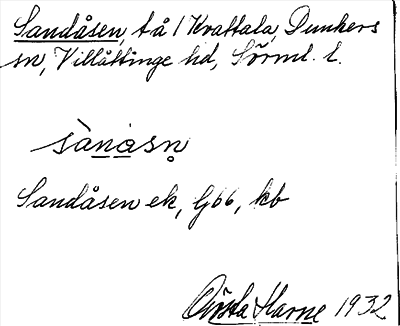 Sandåsen, tå / Kvattala, Dunkers
sn, Villåttinge hd, Sörml. l.
sànàsn̥
Sandåsen ek, G66, kb
Harne 1932